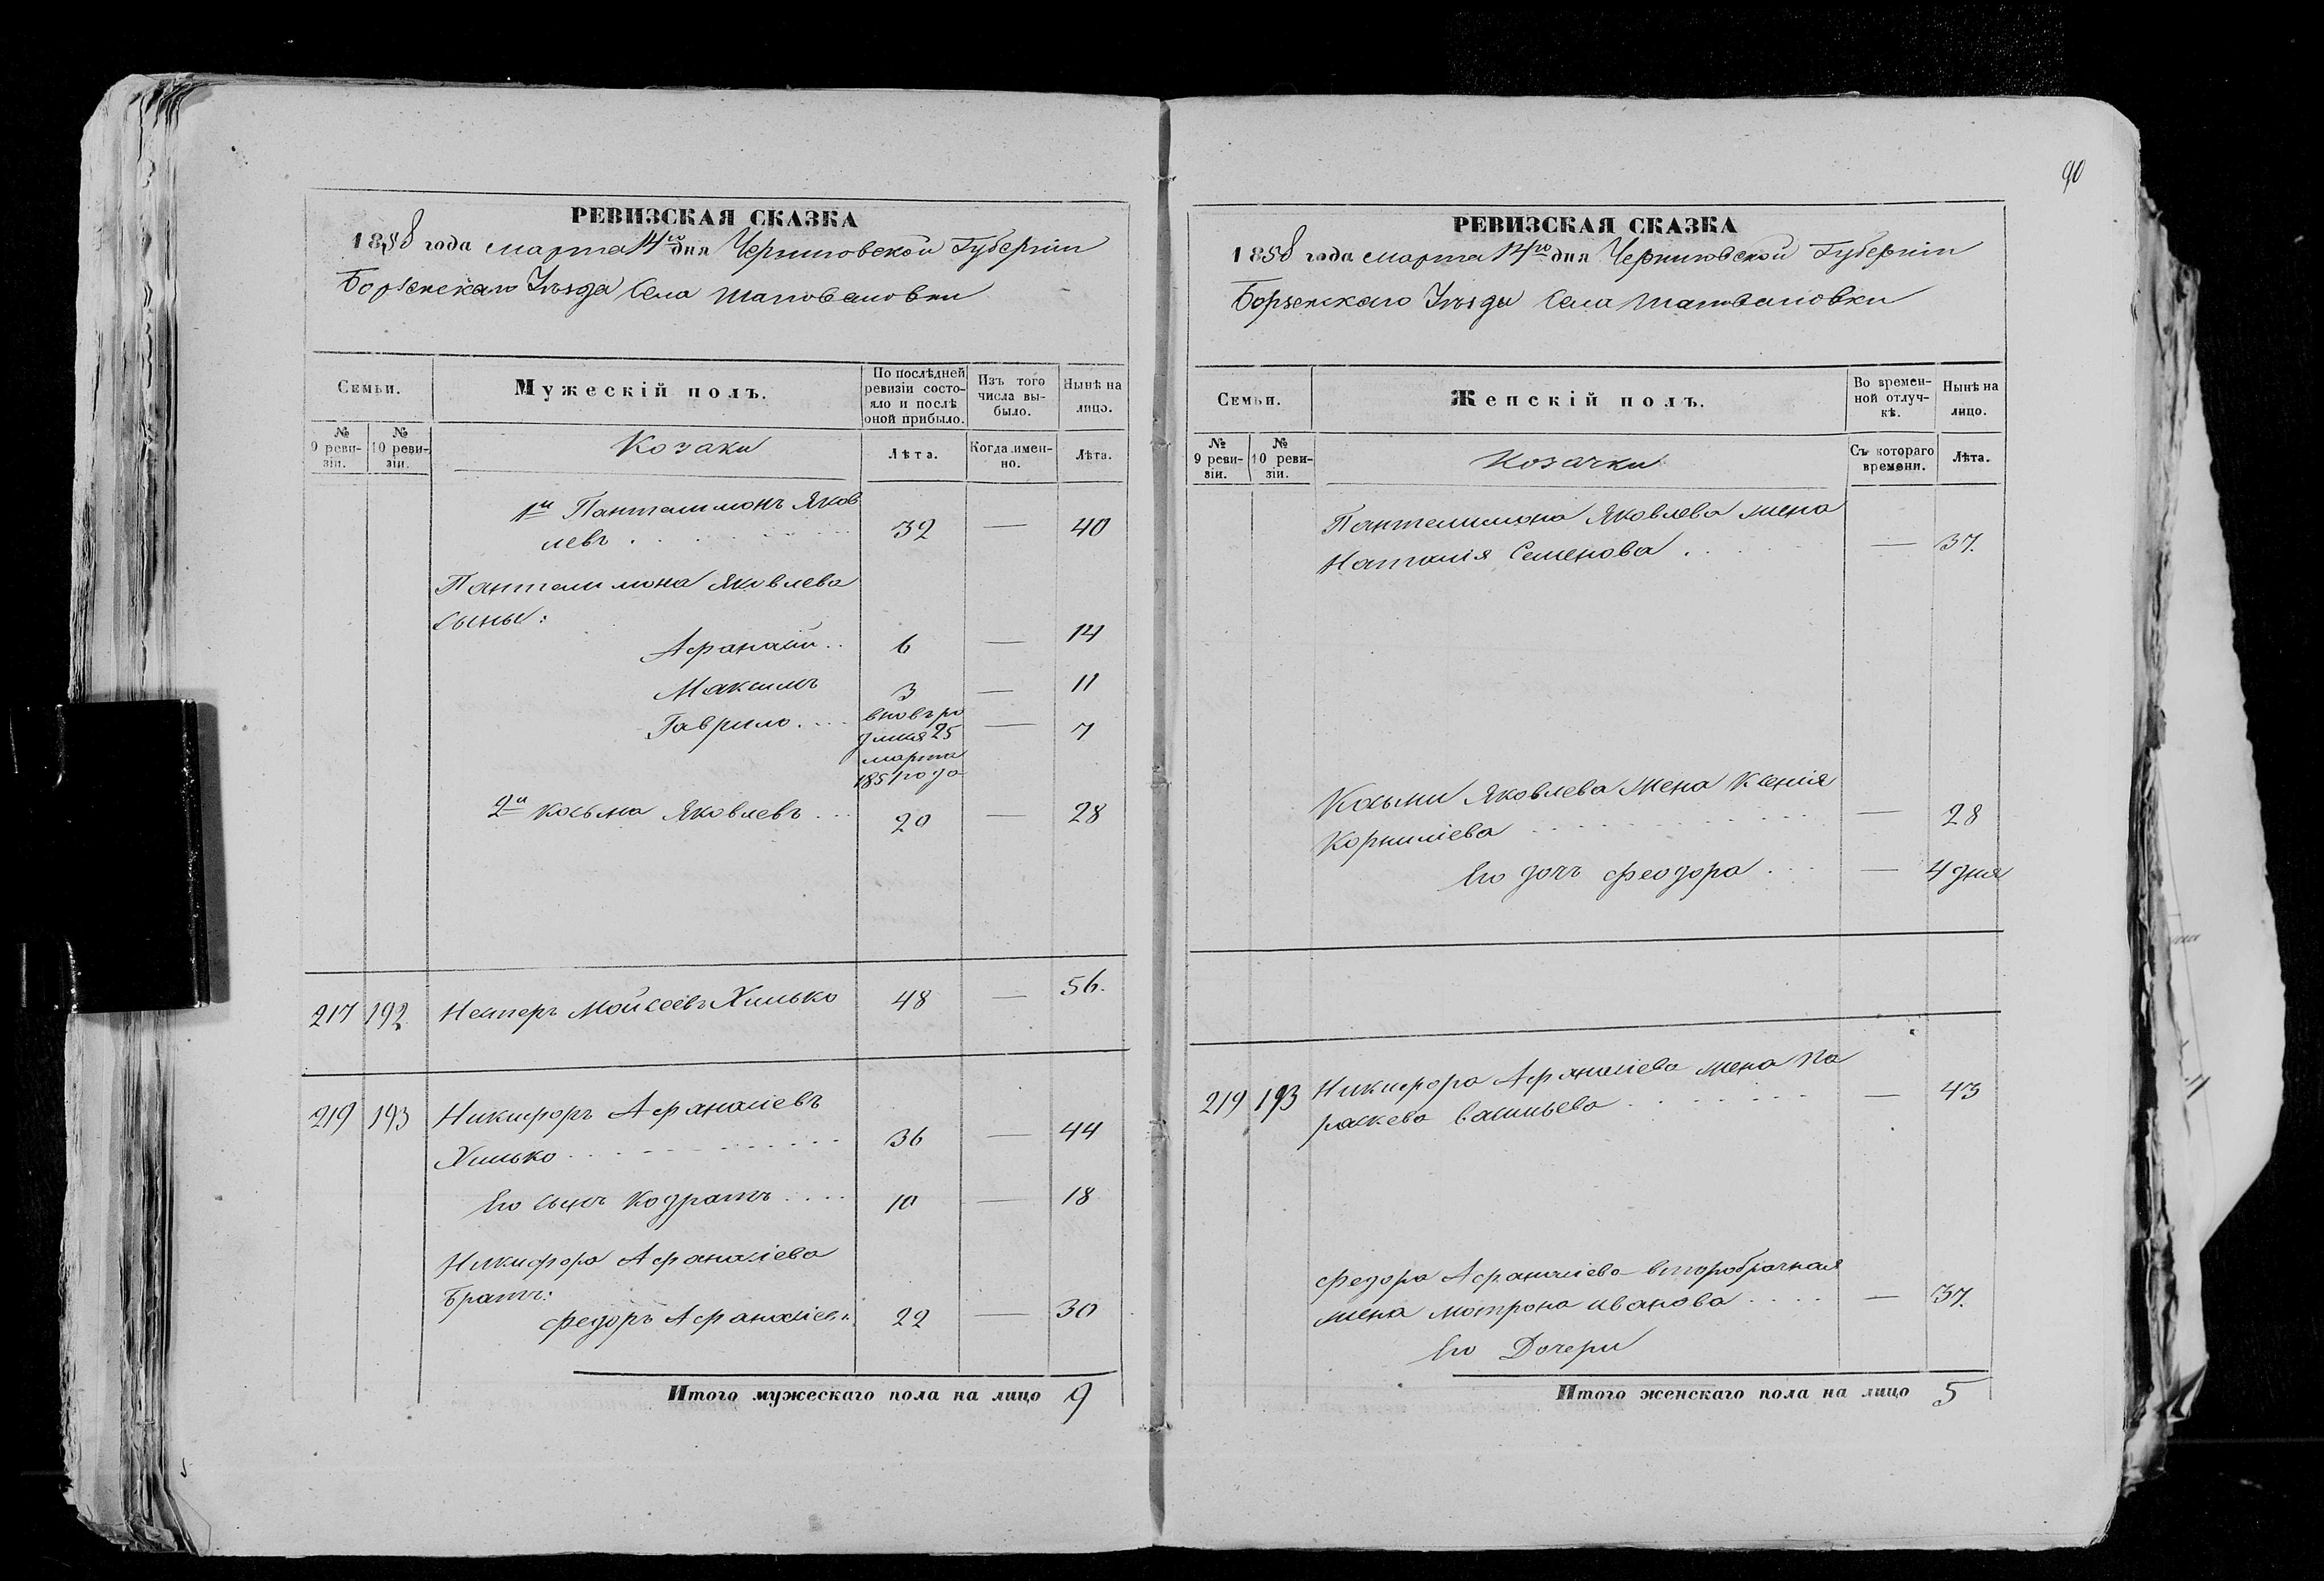 90
РЕВИЗСКАЯ СКАЗКА
1858 года марта 14го дня Черниговской Губерніи
Борзенскаго Уѣзда Села Шаповаловки
Семьи.
Мужескій полъ.
По послѣдней ревизіи состояло и послѣ оной прибыло.
Изъ того числа выбыло.
Нынѣ на лицо.
№ 9 ревизіи.
№ 10 ревизіи.
Козаки
Лѣта.
Когда именно.
Лѣта.
1й Пантелимонъ Яков
левъ . 32 — 40
Пантелимона Яковлева
сыны:
Афанасій .. 6 — 14
Максимъ 3 — 11
Гаврило .... вновь ро — 7
дился 25
марта
1851 года
2й Косьма Яковлевъ ... 20 — 28
217 192 Несторъ Мойсеевъ Хилько 48 — 56.
219 193 Никифоръ Афанасіевъ
Хилько 36 — 44
Его сынъ Кодратъ .... 10 — 18
Никифора Афанасіева
братъ:
Федоръ Афанасіевъ 22 — 30
Итого мужескаго пола на лицо 9
РЕВИЗСКАЯ СКАЗКА
1858 года марта 14го дня Черниговской Губерніи
Борзенскаго Уѣзда Села Шаповаловки
Семьи.
Женскій полъ.
Во временной отлучкѣ.
Нынѣ на лицо.
№ 9 ревизіи.
№ 10 ревизіи.
Козачки
Съ котораго времени.
Лѣта.
Пантелимона Яковлева жена
Наталія Семенова . — 37.
Косьми Яковлева жена Ксенія
Корниліева — 28
Его дочь Феодора ... — 4 дня
219 193 Никифора Афанасіева жена Па
раскева Васильева — 43
Федора Афанасіева второбрачная
жена Мотрона Иванова .... — 37.
Его Дочери
Итого женскаго пола на лицо 5